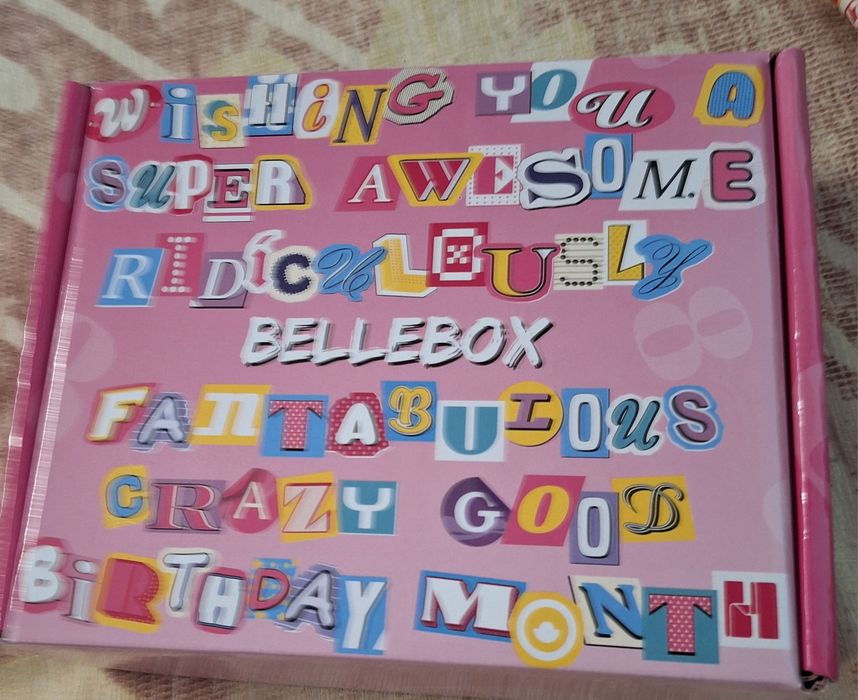 WiSHiNG YOU A
SUPER AWESOME
RIDiCULOUSLY
BELLEBOX
FANTABULOUS
CRAZY GOOD
BiRTHDAY MONTH